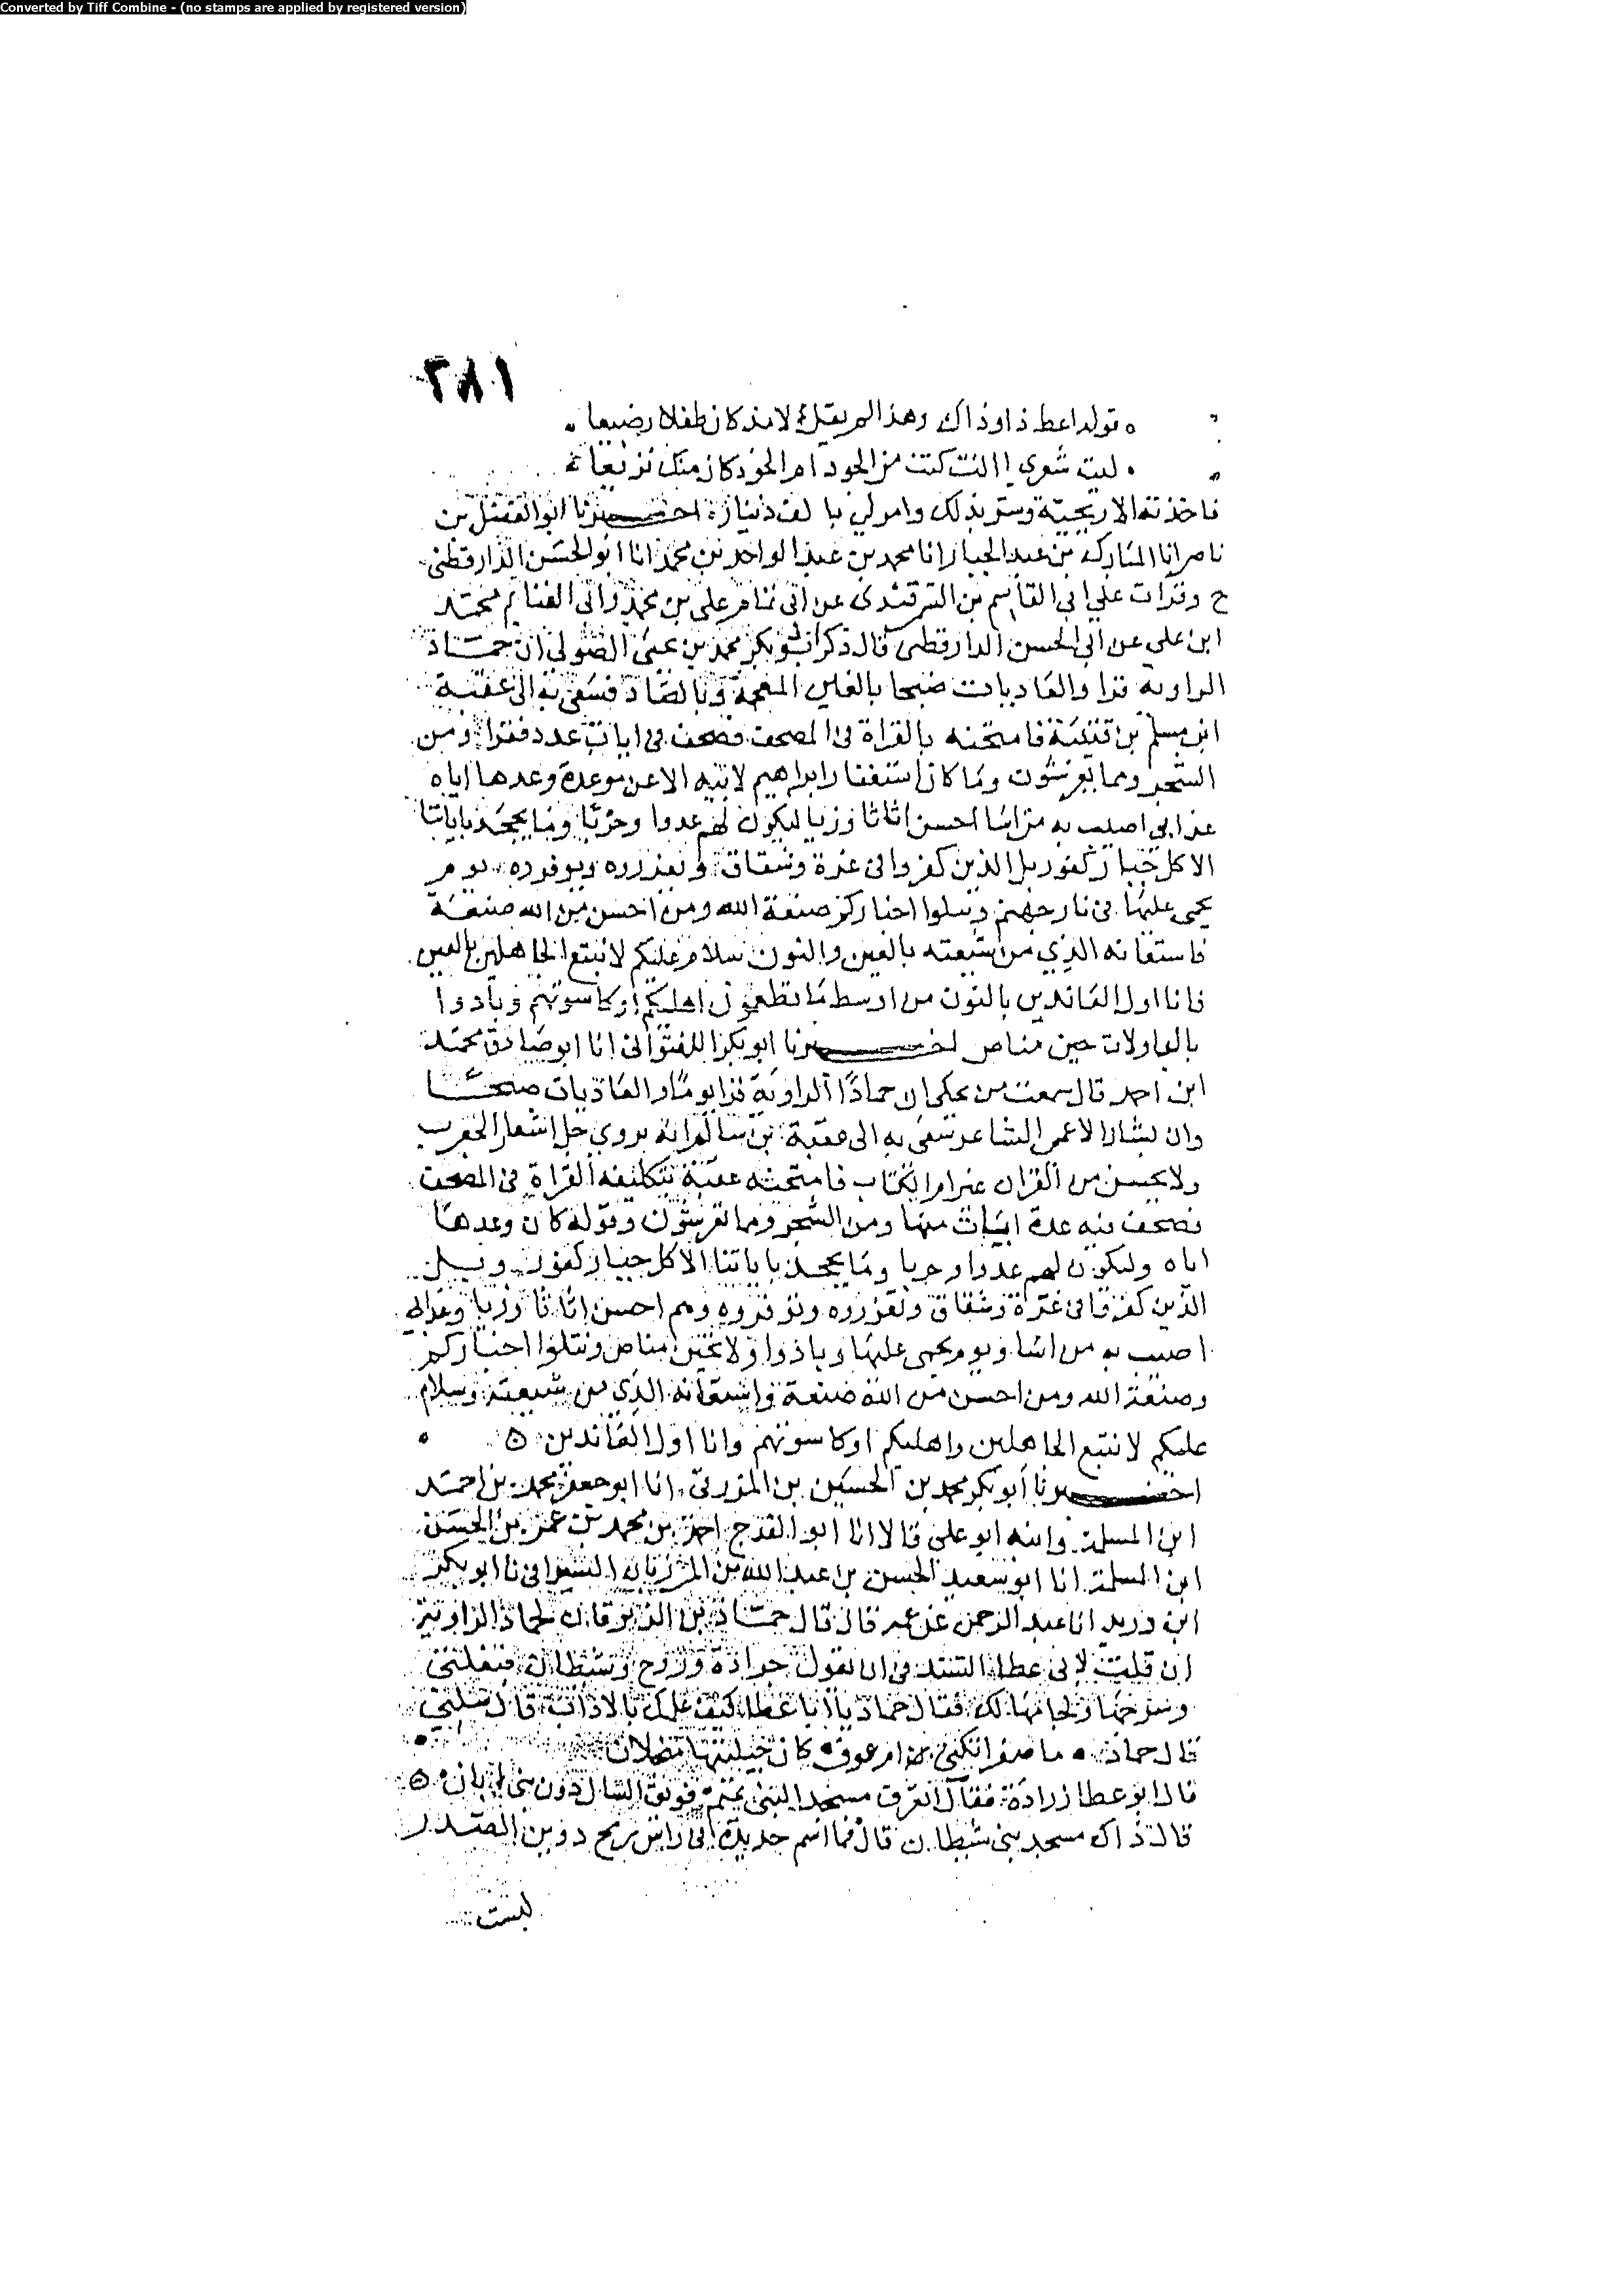 Converted by Tiff Combine - (no stamps are applied by registered version)
٢٨١
قوله اعط ذا وذاك وهذا لم يقل لا مذ كان طفلا رضيعا
ليت شعري اانت كنت من الجود ام الجود كان منك نزيعا
فاخذته الاريحية وسر بذلك وامر لي بالف دينار اخبرنا ابو الفضل بن
ناصر انا المبارك بن عبد الجبار انا محمد بن عبد الواحد بن محمد انا ابو الحسن الدارقطني
ح وقرات على ابي القاسم بن السمرقندي عن ابي تمام علي بن محمد وابي الغنائم محمد
ابن علي عن ابي الحسن الدارقطني قال ذكر ابو بكر محمد بن يحيى الصولي ان حماد
الراوية قرا والغاديات ضبحا بالغين المعجمة وبالصاد فسعي به الى عقبة
ابن مسلم بن قتيبة فامتحنه بالقراة في المصحف فصحف في ايات عدد فقرا ومن
الشجر ومما يغرسون وما كان استغفار ابراهيم لابيه الا عن موعدة وعدها اباه
عذابي اصيب به من اسا احسن اثاثا وزيا ليكون لهم عدوا وحربا وما يجحد باياتنا
الا كل جبار كفور بل الذين كفروا في غرة وشقاق وتعززوه وتوقروه يوم
يحمى عليها في نار جهنم ونبلوا اخباركم صنعة الله ومن احسن من الله صنعة
فاستعانه الذي من شيعته بالعين والنون سلام عليكم لا نتبع الجاهلين بالعين
فانا اول العاندين بالنون من اوسط ما تطعمون اهليكم او كاسوتهم وبادوا
بالعا ولات حين مناص اخبرنا ابو بكر اللفتواني انا ابو صادق محمد
ابن احمد قال سمعت من يحكي ان حمادا الراوية قرا يوما والغاديات صبحا
وان بشارا الاعمى الشاعر سعى به الى عقبة بن سالم انه يروي جل اشعار العرب
ولا يحسن من القران غير ام الكتاب فامتحنه عقبة بتكليفه القراة في المصحف
فصحف فيه عدة ايات منها ومن الشجر ومما تغرسون وقوله كان وعدها
اباه وليكون لهم عدوا وحربا وما يجحد باياتنا الا كل جبار كفور وبل
الذين كفروا في غرة وشقاق وتعززوه وتوقروه وهم احسن اثاثا وزيا وعذابي
اصيب به من اسا ويوم يحمى عليها وبادوا ولات حين مناص ونبلوا اخباركم
وصنعة الله ومن احسن من الله صنعة واستعانه الذي من شيعته وسلام
عليكم لا نتبع الجاهلين واهليكم او كاسوتهم وانا اول العاندين ه
اخبرنا ابو بكر محمد بن الحسين بن المزرفي انا ابو جعفر محمد بن احمد
ابن المسلمة وابنه ابو علي قالا انا ابو الفرج احمد بن محمد بن عمر بن الحسن
ابن المسلمة انا ابو سعيد الحسن بن عبد الله بن المرزبان السيرافي نا ابو بكر
ابن دريد انا عبد الرحمن عن عمه قال قال حماد بن الزبرقان لحماد الراوية
ان قلت لابي عطا السندي ان يقول جرادة وزج وشيطان فبغلتي
وسرجها ولجامها لك فقال حماد يا ابا عطا كيف علمك بالاداب قال سلني
قال حماد ما صفرا تكنى ام عوف كان رجيلتيها منجلان
قال ابو عطا زرادة فقال اتعرف مسجدا لبني تميم فويق السال دون بني ابان ه
قال ذاك مسجد بني شيطان قال فما اسم حديدة في راس رمح دوين الصدر
ليست